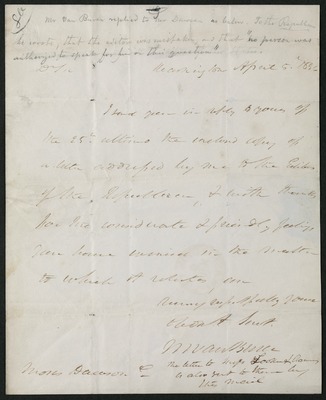 Mr Van Buren replied to Mr Dawson as below. To the Republican
he wrote, that the writer was mistaken, and that "no person was
authorized to speak for him on this question"
Washington April 5th
I send you in reply to yours of
the 25th ultimo the enclosed copy of
a letter addressed by me to the Editor
of the Republican, & with thanks
for the considerate & friendly feelings
you have evinced in the matter
to which it relates, am
Very respectfully yours
Obedt Servt
M Van Buren
the letter to Messrs
is also sent to them by
this mail
Moses Dawson